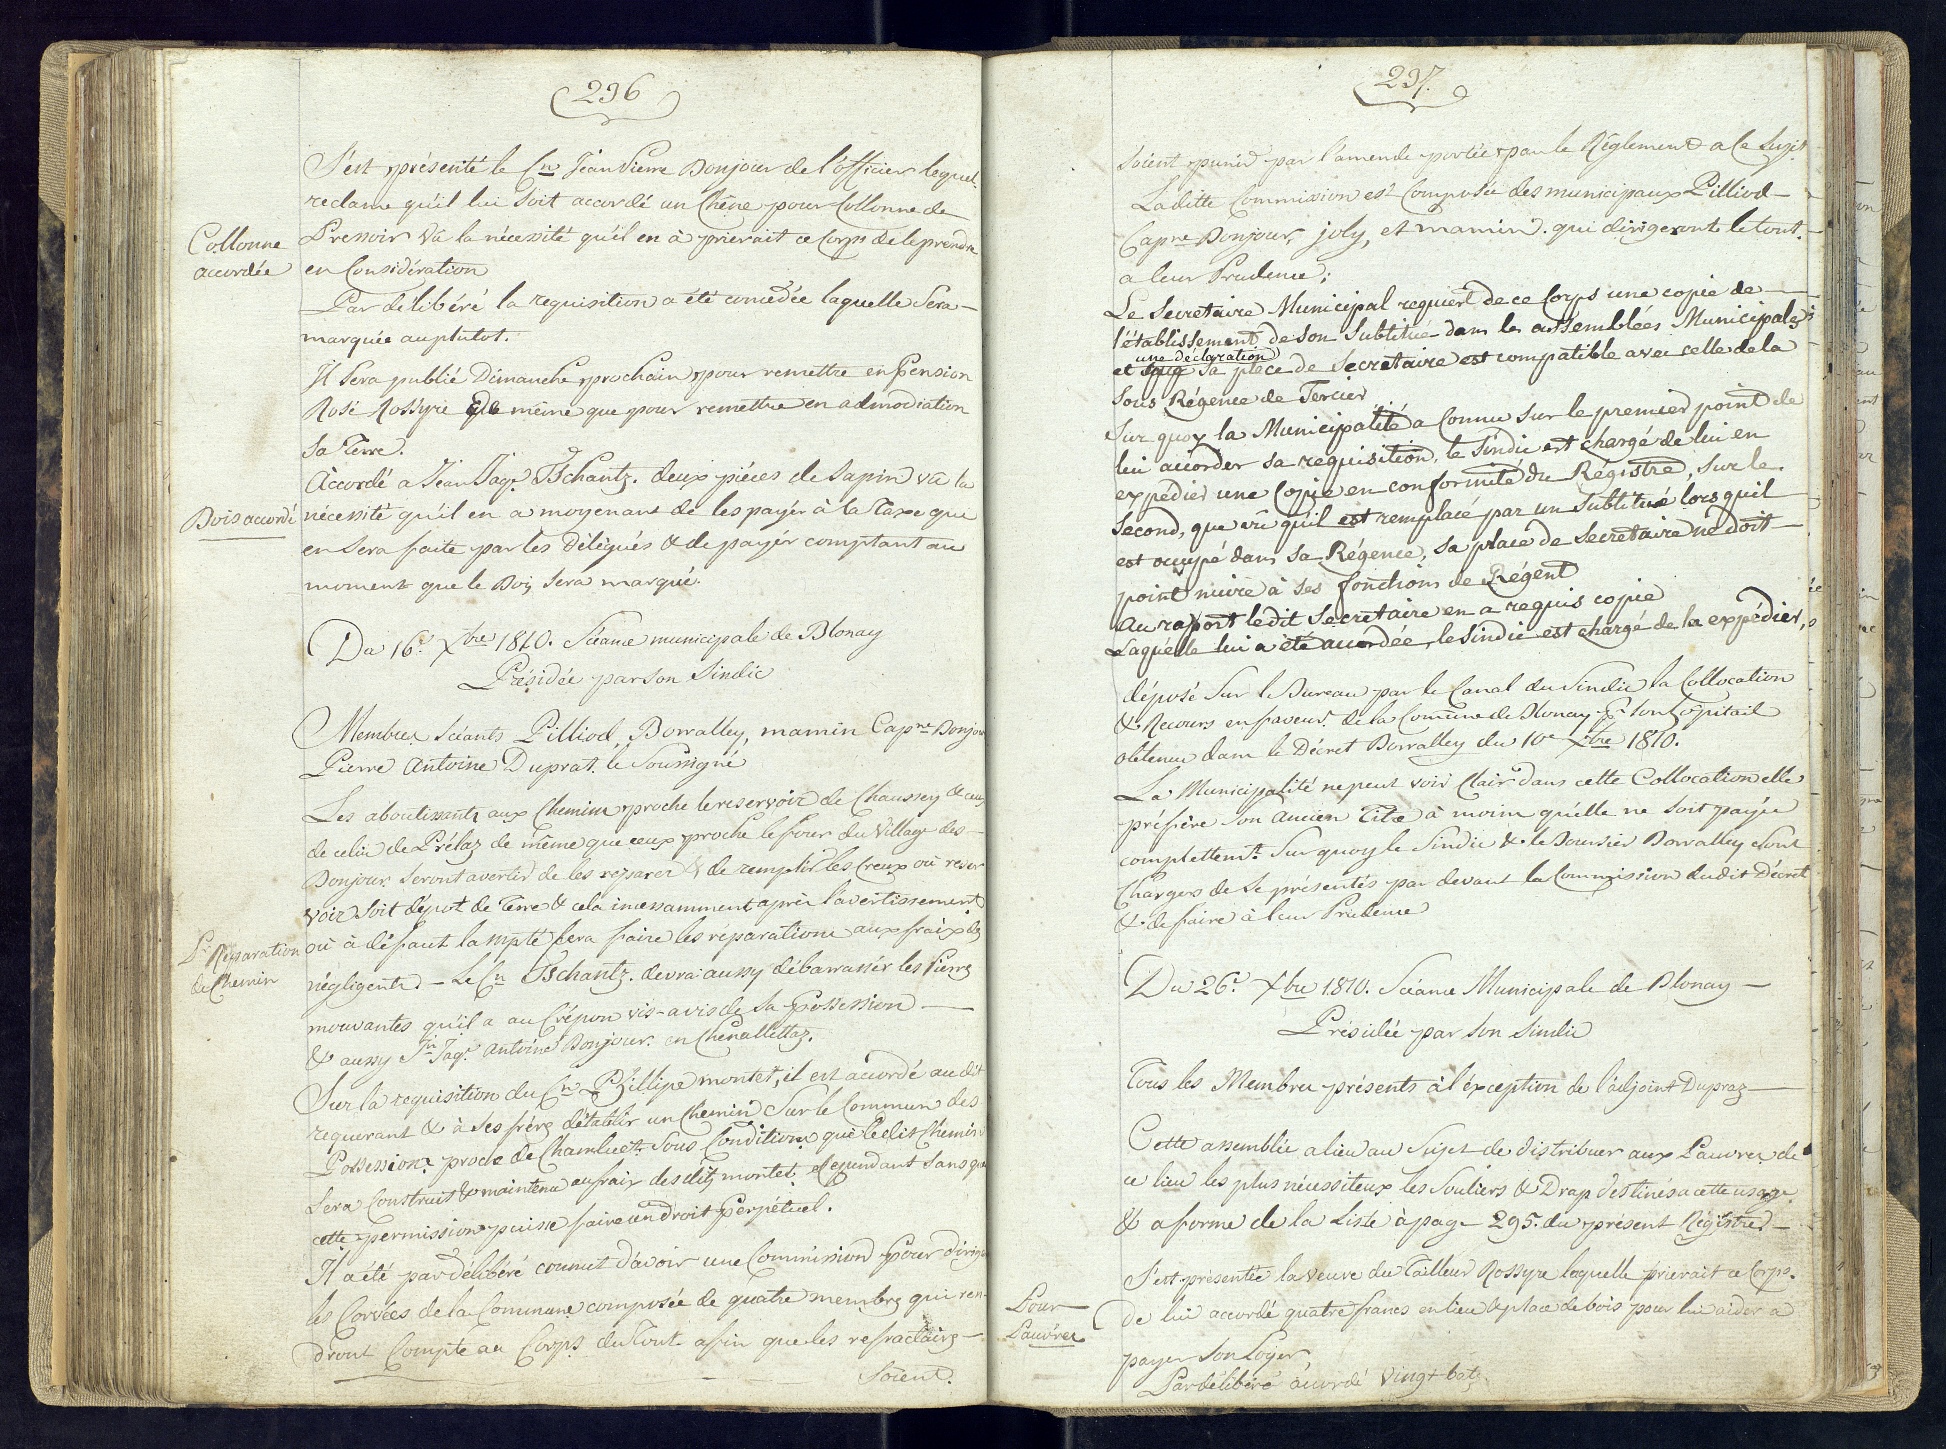 296
S'est présenté le Cn Jean Pierre Bonjour de l'officier lequel
reclame qu'il lui soit accordé un Chêne pour Collonne de
Collonne
accordée
Pressoir vû la nécessité qu'il en à prierait ce Corps de le prendre
en Considération
Par délibéré la requisition a été concédée laquelle Sera
marquée au plutot.
Il Sera publié Dimanche prochain pour remettre en Pension
Rose Rossyre de même que pour remettre en admodiation
Sa Terre.
Accordé a Jean Jaqs Tschantz. deux piéces de Sapin vû la
Bois accordé
nécessité qu'il en a moyenant de les payér à la Taxe que
en Sera faite par les Délégués & de payér comptant au
moment que le Bois Sera marqué.
Du 16e Xbre 1810. Séance municipale de Blonay
Présidée par son Sindic
Membres Séants Pilliod, Borralley, mamin Capne Bonjour
Pierre Antoine Duprat. le Soussigné
Les aboutissants aux Chemins proche le reservoir de Chaussey & ceux
de celui de Prélaz de même que ceux proche le four du Village des
Bonjour. Seront avertis de les reparer & de remplir les Creux où reser
voir soit dépot de Terre & cela incessamment aprèr l'avertissement
Pr Réparation
de Chemin
où à défaut la mpté fera faire les reparations aux fraix des
négligents — Le Cn Tschantz. devra aussy débarrassér les Pierres
mouvantes qu'il a au Crépon vis-avis de Sa Possession —
& aussy Jn Jaqs Antoine Bonjour. en Chenallettaz.
Sur la requisition du Cn Phillipe montet, il est accordé audit
requerant & à ses fréres d'établir un Chemin Sur le Commun des
Possessions proche de Chamluet. Sous Condition que ledit Chemin
Sera Construit & maintenu au frais desdits montet. Cependant Sans que
cette permission puisse faire un droit Perpétuel.
Il a été par délibéré connut d'avoir une Commission Pour diriger
les Corvées de la Commune composée de quatre membres qui ren-
dront Compte au Corps du Tout affin que les refractaires —
Soient.
297.
Soient punis par l'amende portée par le Réglement a ce Sujet
Laditte Commission est Composée des municipaux Pilliod —
Capne Bonjour, joly, et mamin. qui dirigeront le tout
a leur Prudence;
Le Secretaire Municipal requiert de ce Corps une copie de —
l'établissement de son Subtitué dans les assemblées Municipales
et une déclaration que Sa place de Secretaire est compatible avec celle de la
Sous Régence de Tercier
Sur quoy la Municipalité a Connu Sur le premier point de
lui accorder sa requisition, le Sindic est chargé de lui en
expédier une Copie en conformité du Régistre, Sur le
Second, que vû qu'il est remplacé par un Subtitué lorsquil
est occupé dans sa Régence, sa place de Secretaire ne doit —
point nuire à ses fonctions de Régent
Au raport ledit Secretaire en a requis copie
Laquelle lui a été accordée, le Sindic est chargé de la expédier,
déposé Sur le Bureau par le Canal du Sindic la Collocation
& Recours en faveur de la Comune de Blonay & Son hopitail
obtenue dans le Décret Borralley du 10e Xbre 1810.
La Municipalité ne peut voir Clair dans cette Collocation elle
préfère son Ancien Titre à moins qu'elle ne soit payée
complettemt. Sur quoy le Sindic & le Boursier Borralley Sont
Chargers de se présentés par devant la Commission dudit Décret
& de faire à leur Prudence
Du 26e Xbre 1810. Séance Municipale de Blonay —
Présidée par Son Sindic
Tous les Membres présents à l'éxception de l'adjoint Dupraz —
Cette assemblée a lieu au Sujet de distribuer aux Pauvres de
ce lieu les plus nécessiteux les Souliers & Drap destinés a cette usage
& a forme de la Liste à page 295. du présent Régistre —
S'est présentée la veuve du Tailleur Rossyre laquelle prierait ce Corps
Pour
Pauvres
de lui accordé quatre francs en lieu & place de bois pour lui aider a
payer Son Loyer,
Par délibéré accordé vingt batz